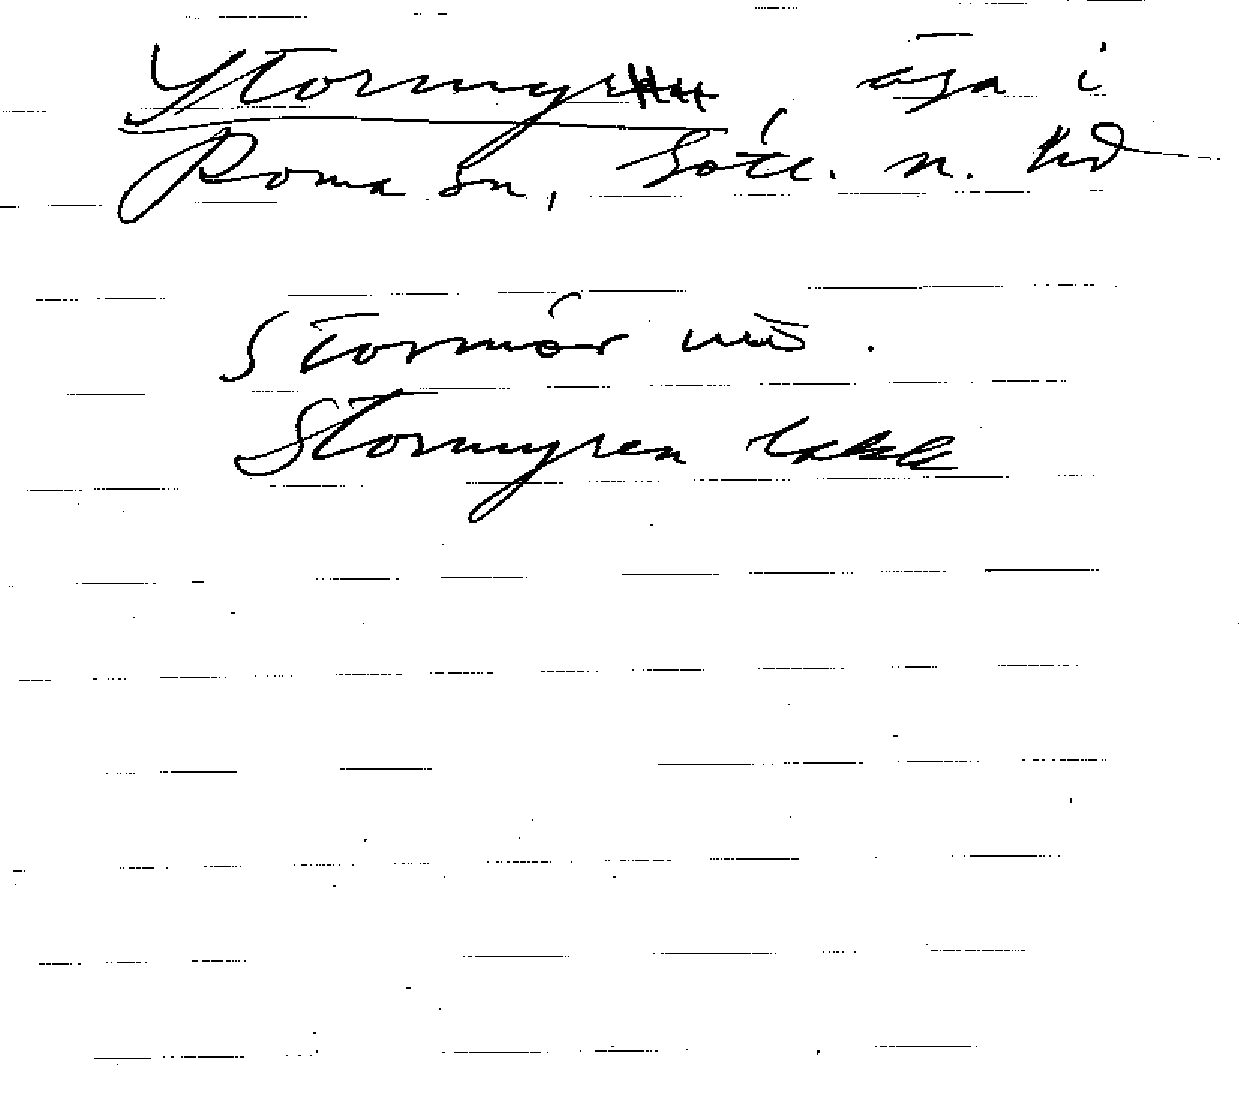 Stormyr äga i
Roma sn, Gotl. n. hd
Stormör uö.
Stormyren